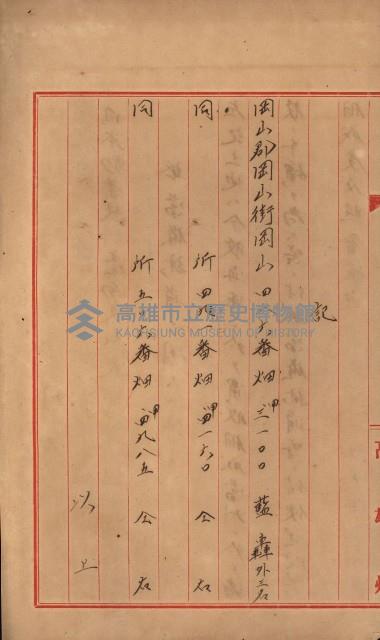 記
岡山郡岡山街岡山四一六番畑 三一〇〇 藍轟外三名
同 所 四四六番畑 甲 四一六〇 仝 右
同 所 五五六番畑 甲 四九八五 仝 右
以上
高雄州
高雄市立歷史博物館
KAOHSIUNG MUSEUM OF HISTORY